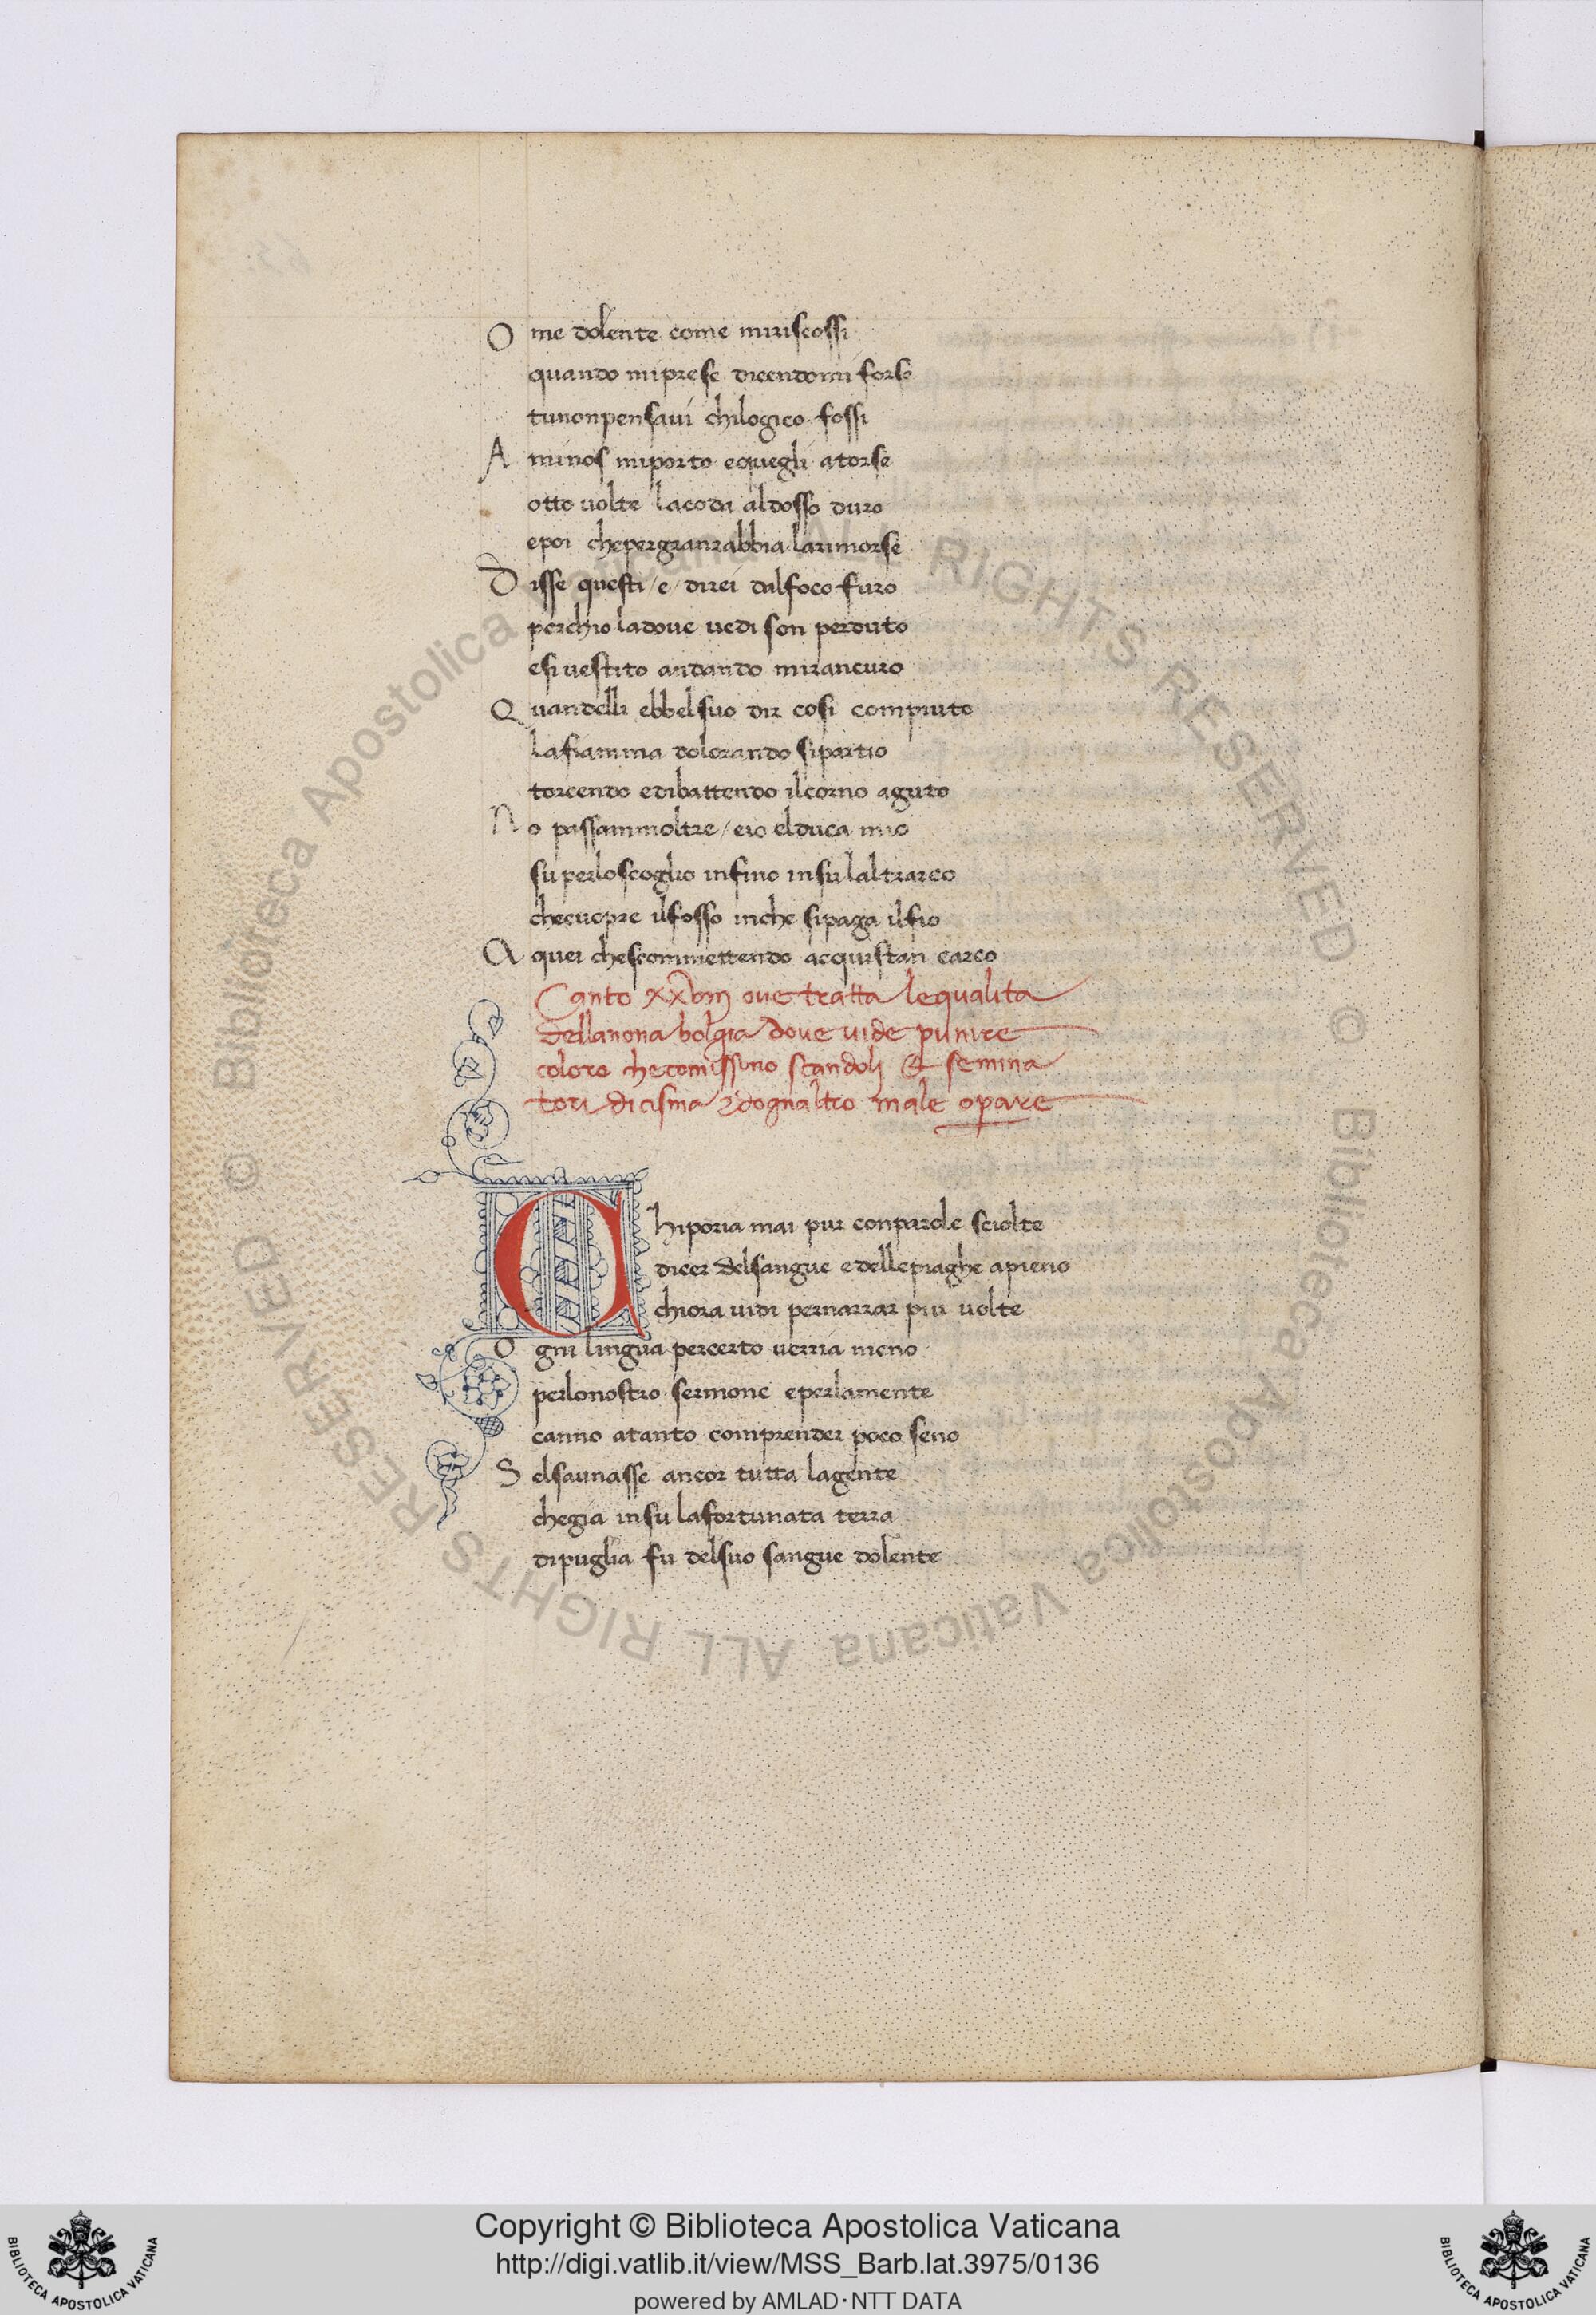 O me dolente come miriscossi
quando miprese dicendomi forse
tunonpensavi chilogico fossi
A minos miporto equegli atorse
otto uolte lacoda aldosso duro
epoi chepergranrabbia larimorse
D isse questi / e / direi dalfoco furo
perchio ladove vedi son perduto
esi uestito andando mirancuro
Q uandelli ebbelsuo dir cosi compiuto
lafiamma dolorando sipartio
torcendo edibattendo ilcorno aguto
N o passammoltre / eio elduca mio
su perloscoglio infino insu laltrarco
checuopre ilfosso inche sipaga ilfio
A quei chescommettendo acquistan carco
Canto xxviii ove tratta lequalita
dellanona bolgia dove vide punire
coloro checomissono scandoli & semina
tori dicisma 7dognaltro male opare
C hiporia mai pur conparole sciolte
dicer delsangue edellepiaghe apieno
chiora uidi pernarrar piu uolte
O gni lingua percerto uerria meno
perlonostro sermone eperlamente
canno atanto comprender poco seno
S elsaunasse ancor tutta lagente
chegia insu lafortunata terra
dipuglia fu delsuo sangue dolente
© Biblioteca Apostolica Vaticana ALL RIGHTS RESERVED © Biblioteca Apostolica Vaticana ALL RIGHTS RESERVED
BIBLIOTECA APOSTOLICA VATICANA
Copyright © Biblioteca Apostolica Vaticana
http://digi.vatlib.it/view/MSS_Barb.lat.3975/0136
powered by AMLAD·NTT DATA
BIBLIOTECA APOSTOLICA VATICANA